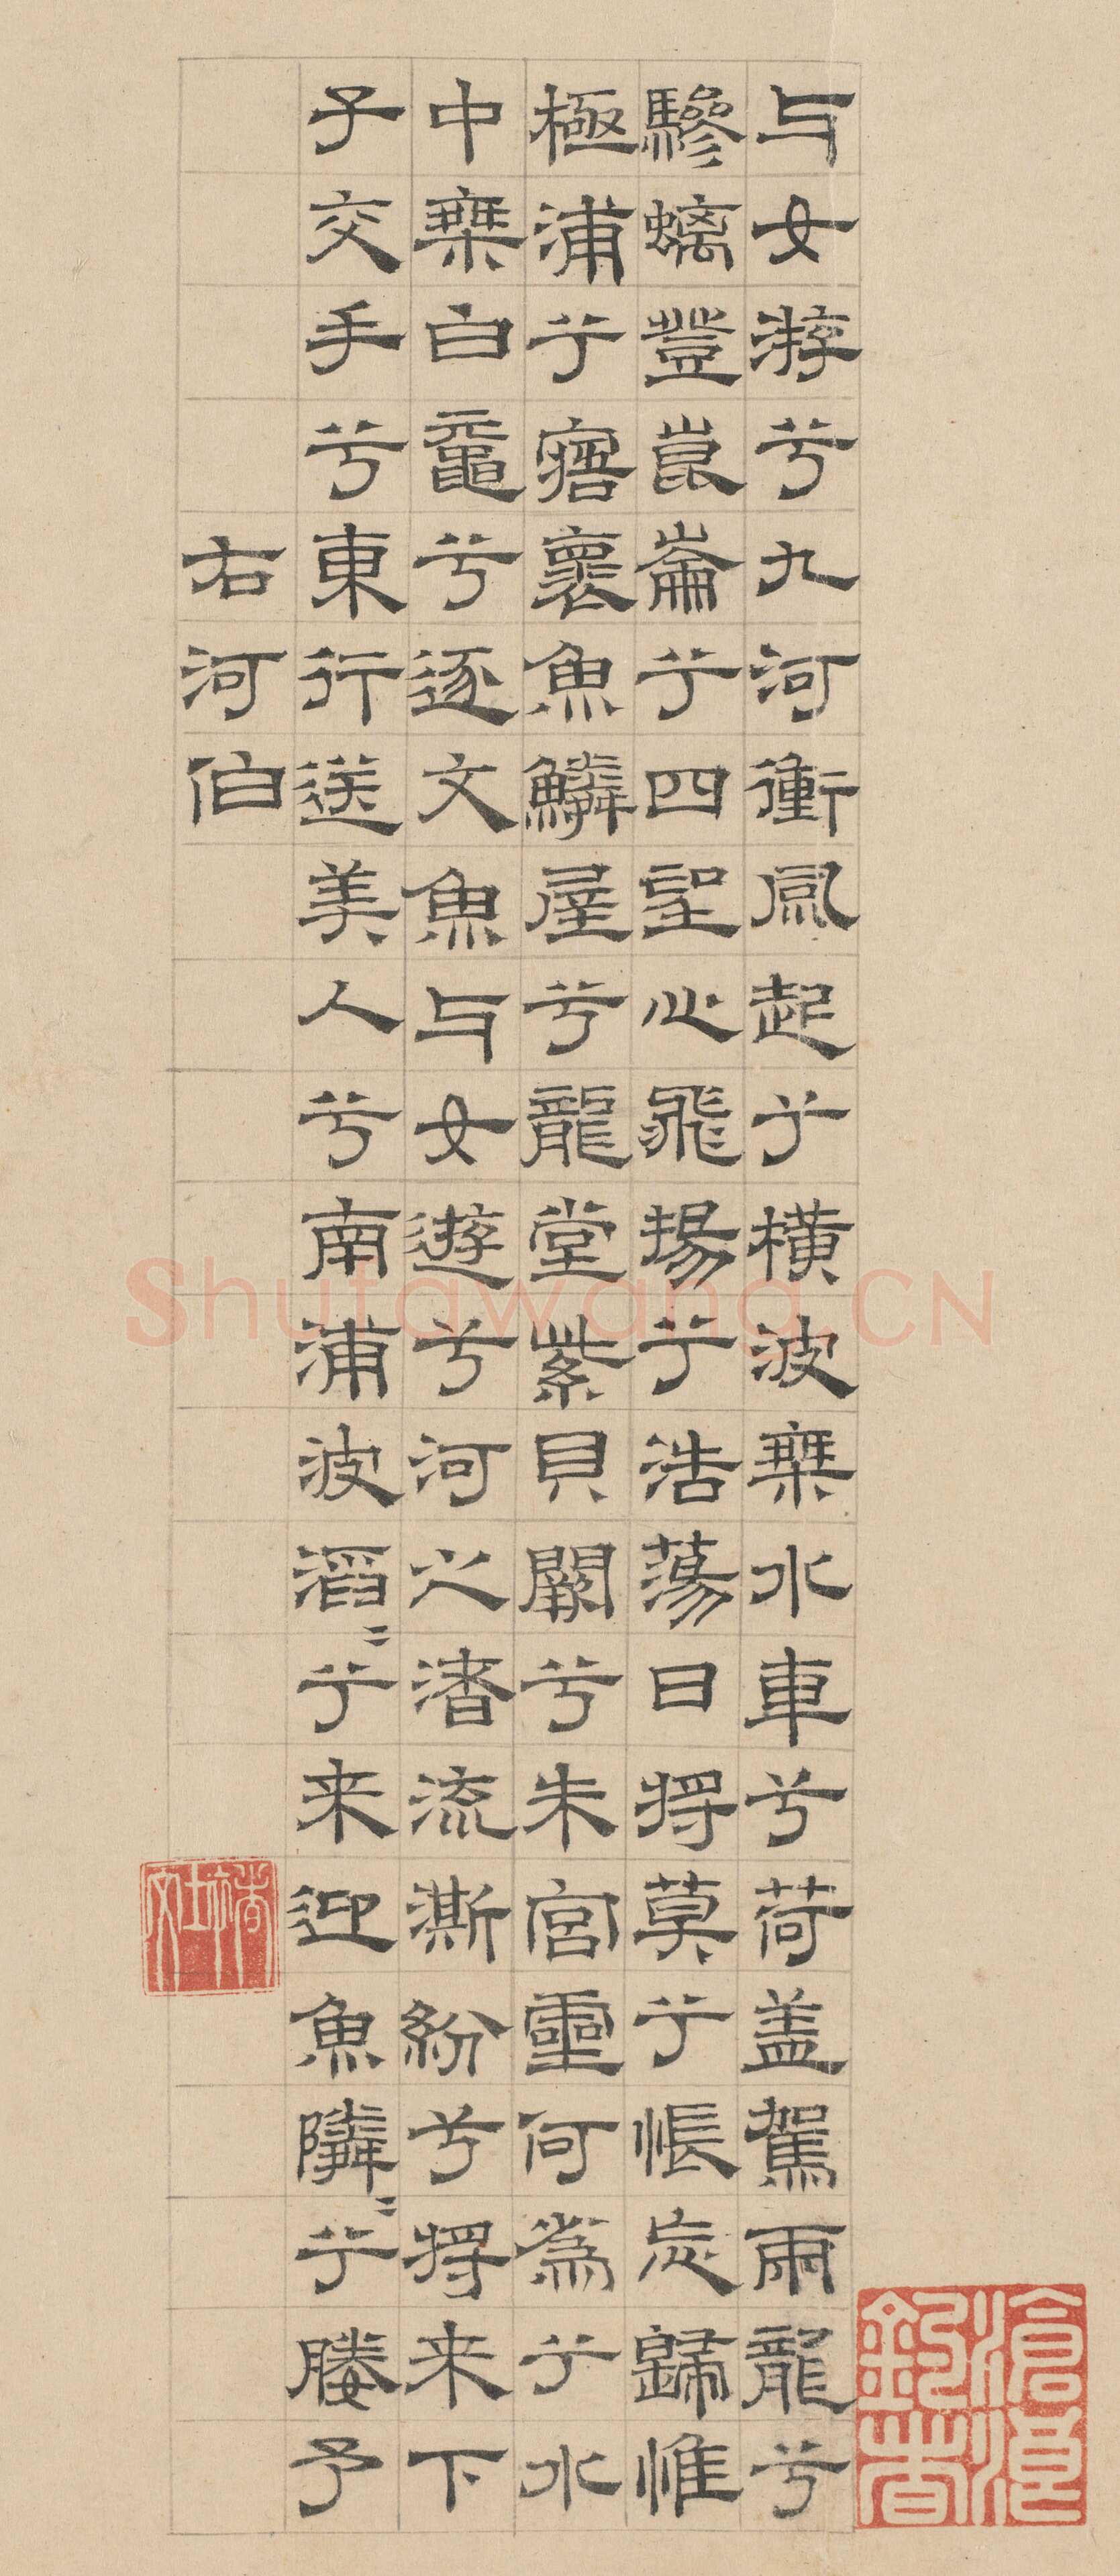 与女游兮九河衝風起乎橫波椉水車兮荷盖駕兩龍兮
驂螭豋崑崙乎四望心飛揚乎浩蕩日將莫乎悵忘歸惟
極浦乎寤褱魚鱗屋兮龍堂紫貝闕兮朱宮靈何為乎水
中椉白黿兮逐文魚与女遊兮河之渚流澌紛兮將来下
子交手兮東行送美人兮南浦波滔〻乎来迎魚隣〻乎媵予
右河伯
Shufawang.CN